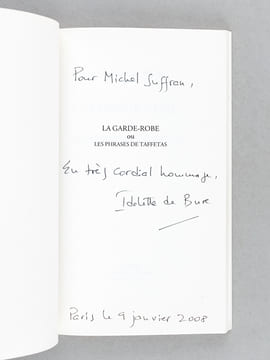 Pour Michel Suffran,
LA GARDE-ROBE
ou
LES PHRASES DE TAFFETAS
En très cordial hommage,
Idelette de Bure
Paris le 9 janvier 2008